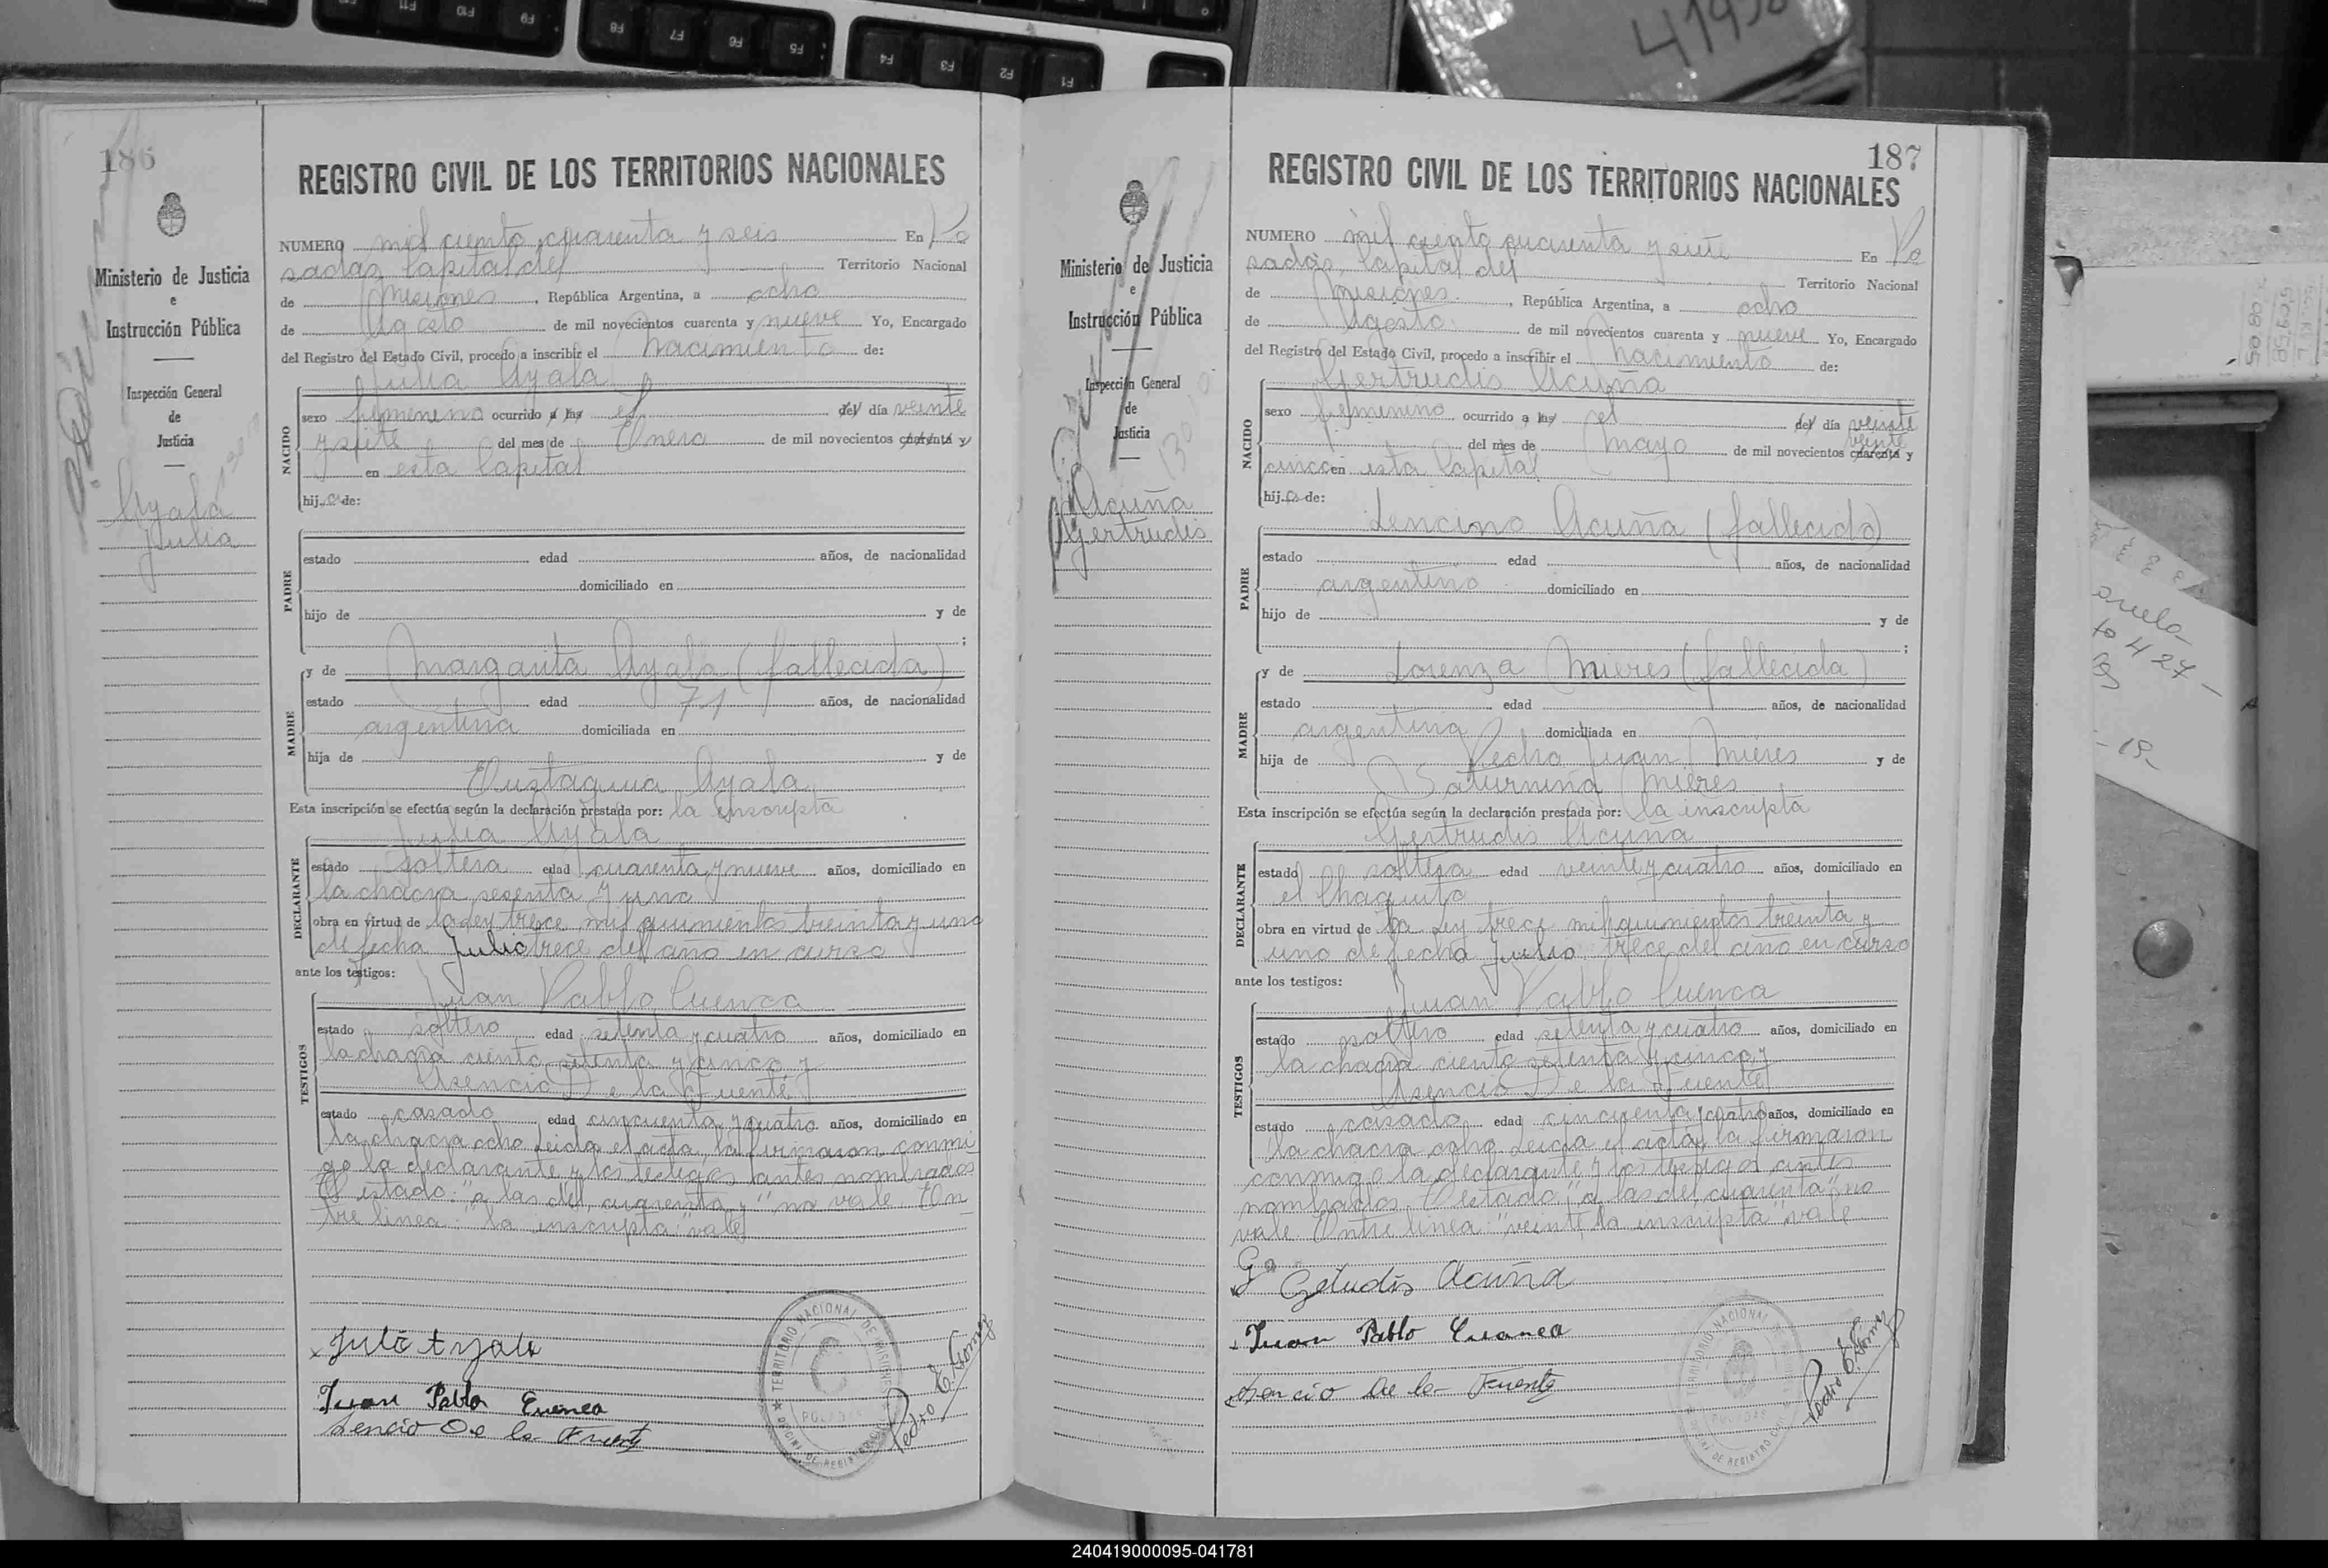 186
Ministerio de Justicia
e
Instrucción Pública
Inspección General
de
Justicia
Ayala
Julia
REGISTRO CIVIL DE LOS TERRITORIOS NACIONALES
NUMERO mil ciento cuarenta y seis En Po
sadas, Capital del Territorio Nacional
de Misiones, República Argentina, a ocho
de Agosto de mil novecientos cuarenta y nueve Yo, Encargado
del Registro del Estado Civil, procedo a inscribir el nacimiento de:
Julia Ayala
NACIDO
sexo femenino ocurrido a las el del día veinte
y siete del mes de Enero de mil novecientos cuarenta y
en esta Capital
hija de:
PADRE
estado edad años, de nacionalidad
domiciliado en
hijo de y de
;
MADRE
y de Margarita Ayala (fallecida)
estado edad 71 años, de nacionalidad
argentina domiciliada en
hija de y de
Eustaquia Ayala
Esta inscripción se efectúa según la declaración prestada por: la inscripta
Julia Ayala
DECLARANTE
estado soltera edad cuarenta y nueve años, domiciliado en
la chacra sesenta y uno
obra en virtud de la ley trece mil quinientos treinta y uno
de fecha Julio trece del año en curso
ante los testigos:
Juan Pablo Cuenca
TESTIGOS
estado soltero edad setenta y cuatro años, domiciliado en
la chacra ciento setenta y cinco y
Asencio De la Fuente
estado casado edad cincuenta y cuatro años, domiciliado en
la chacra ocho. Leida el acta, la firmaron conmi
go la declarante y los testigos antes nombrados.
E estado: "a las del, cuarenta y" no vale. En
tre linea: "la inscripta: vale
Juan Pablo Cuenca
Asencio De la Fuente
Pedro E. Gomez
TERRITORIO NACIONAL DE MISIONES
POSADAS
187
Ministerio de Justicia
e
Instrucción Pública
Inspección General
de
Justicia
Acuña
Gertrudis
REGISTRO CIVIL DE LOS TERRITORIOS NACIONALES
NUMERO mil ciento cuarenta y siete En Po
sadas, Capital del Territorio Nacional
de Misiones, República Argentina, a ocho
de Agosto de mil novecientos cuarenta y nueve Yo, Encargado
del Registro del Estado Civil, procedo a inscribir el nacimiento de:
Gertrudis Acuña
NACIDO
sexo femenino ocurrido a las el del día veinte
veinte
del mes de Mayo de mil novecientos cuarenta y
cinco en esta Capital
hija de:
PADRE
Lencino Acuña (fallecido)
estado edad años, de nacionalidad
argentino domiciliado en
hijo de y de
;
MADRE
y de Lorenza Mieres (fallecida)
estado edad años, de nacionalidad
argentina domiciliada en
hija de Pedro Juan Mieres y de
Saturnina Mieres
Esta inscripción se efectúa según la declaración prestada por: la inscripta
Gertrudis Acuña
DECLARANTE
estado soltera edad veinte y cuatro años, domiciliado en
el Chaquito
obra en virtud de la ley trece mil quinientos treinta y
uno de fecha Julio trece del año en curso
ante los testigos:
Juan Pablo Cuenca
TESTIGOS
estado soltero edad setenta y cuatro años, domiciliado en
la chacra ciento setenta y cinco y
Asencio De la Fuente
estado casado edad cincuenta y cuatro años, domiciliado en
la chacra ocho. Leida el acta, la firmaron
conmigo la declarante y los testigos antes
nombrados. E estado: "a las del cuarenta" no
vale. Entre linea: "veinte, la inscripta" vale
Getudis Acuña
Juan Pablo Cuenca
Asencio De la Fuente
Pedro E. Gomez
POSADAS
240419000095-041781